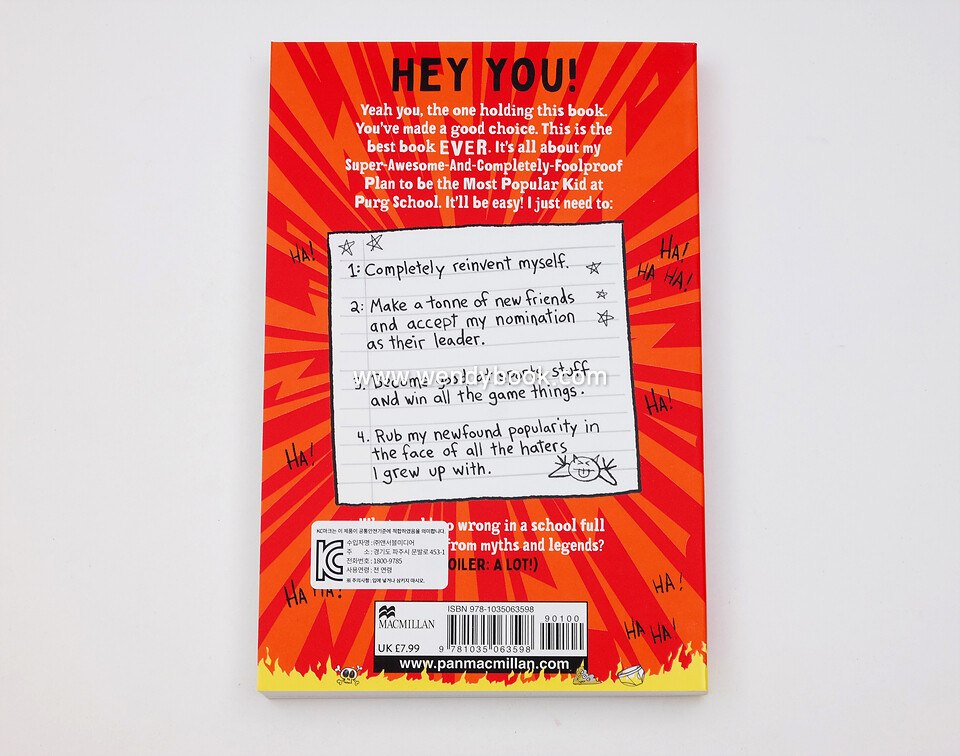 HEY YOU!
Yeah you, the one holding this book.
You've made a good choice. This is the
best book EVER. It's all about my
Super-Awesome-And-Completely-Foolproof
Plan to be the Most Popular Kid at
Purg School. It'll be easy! I just need to:
HA!
HA!
HA HA!
1: Completely reinvent myself.
2: Make a tonne of new friends
and accept my nomination
as their leader.
www.wendybook.com
3. Become good at sports stuff
AND win all the game things.
HA!
4. Rub my newfound popularity in
the face of all the haters
I grew up with.
HA!
wrong in a school full
from myths and legends?
A LOT!)
KC마크는 이 제품이 공통안전기준에 적합하였음을 의미합니다.
수입자명 : ㈜앤서블미디어
주 소 : 경기도 파주시 문발로 453-1
전화번호 : 1800-9785
사용연령 : 전 연령
※ 주의사항 : 입에 넣거나 삼키지 마시오.
HA HA!
HA!
HA HA!
MACMILLAN
UK £7.99
ISBN 978-1035063598
90100
9 781035 063598
www.panmacmillan.com